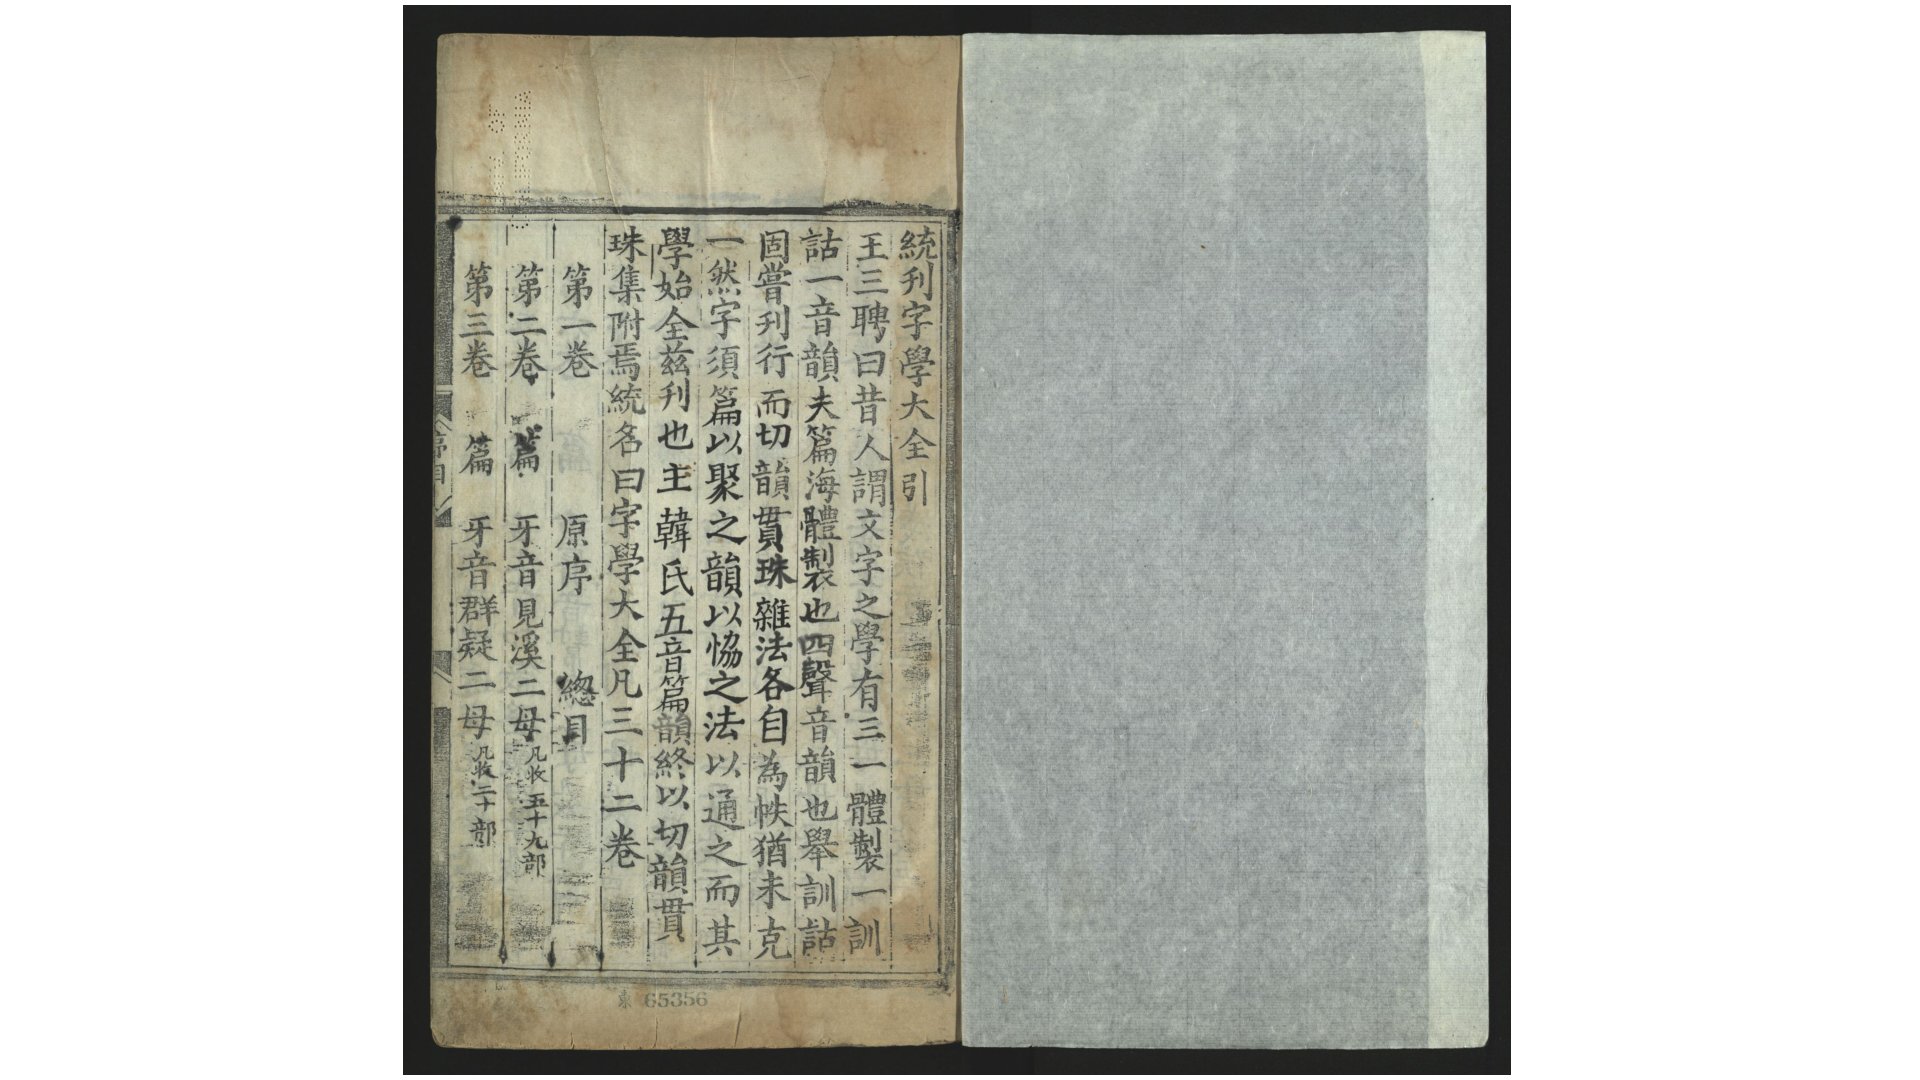 統刋字學大全引
王三聘曰昔人謂文字之學有三一體製一訓
詁一音韻夫篇海體製也四聲音韻也舉訓詁
固嘗刋行而切韻貫珠雜法各自為帙猶未克
一然字須篇以聚之韻以恊之法以通之而其
學始全茲刋也主韓氏五音篇韻終以切韻貫
珠集附焉統名曰字學大全凡三十二卷
第一卷 原序 總目
第二卷 篇 牙音見溪二母凡收五十九部
第三卷 篇 牙音群疑二母凡收二十部
序目
東 65356